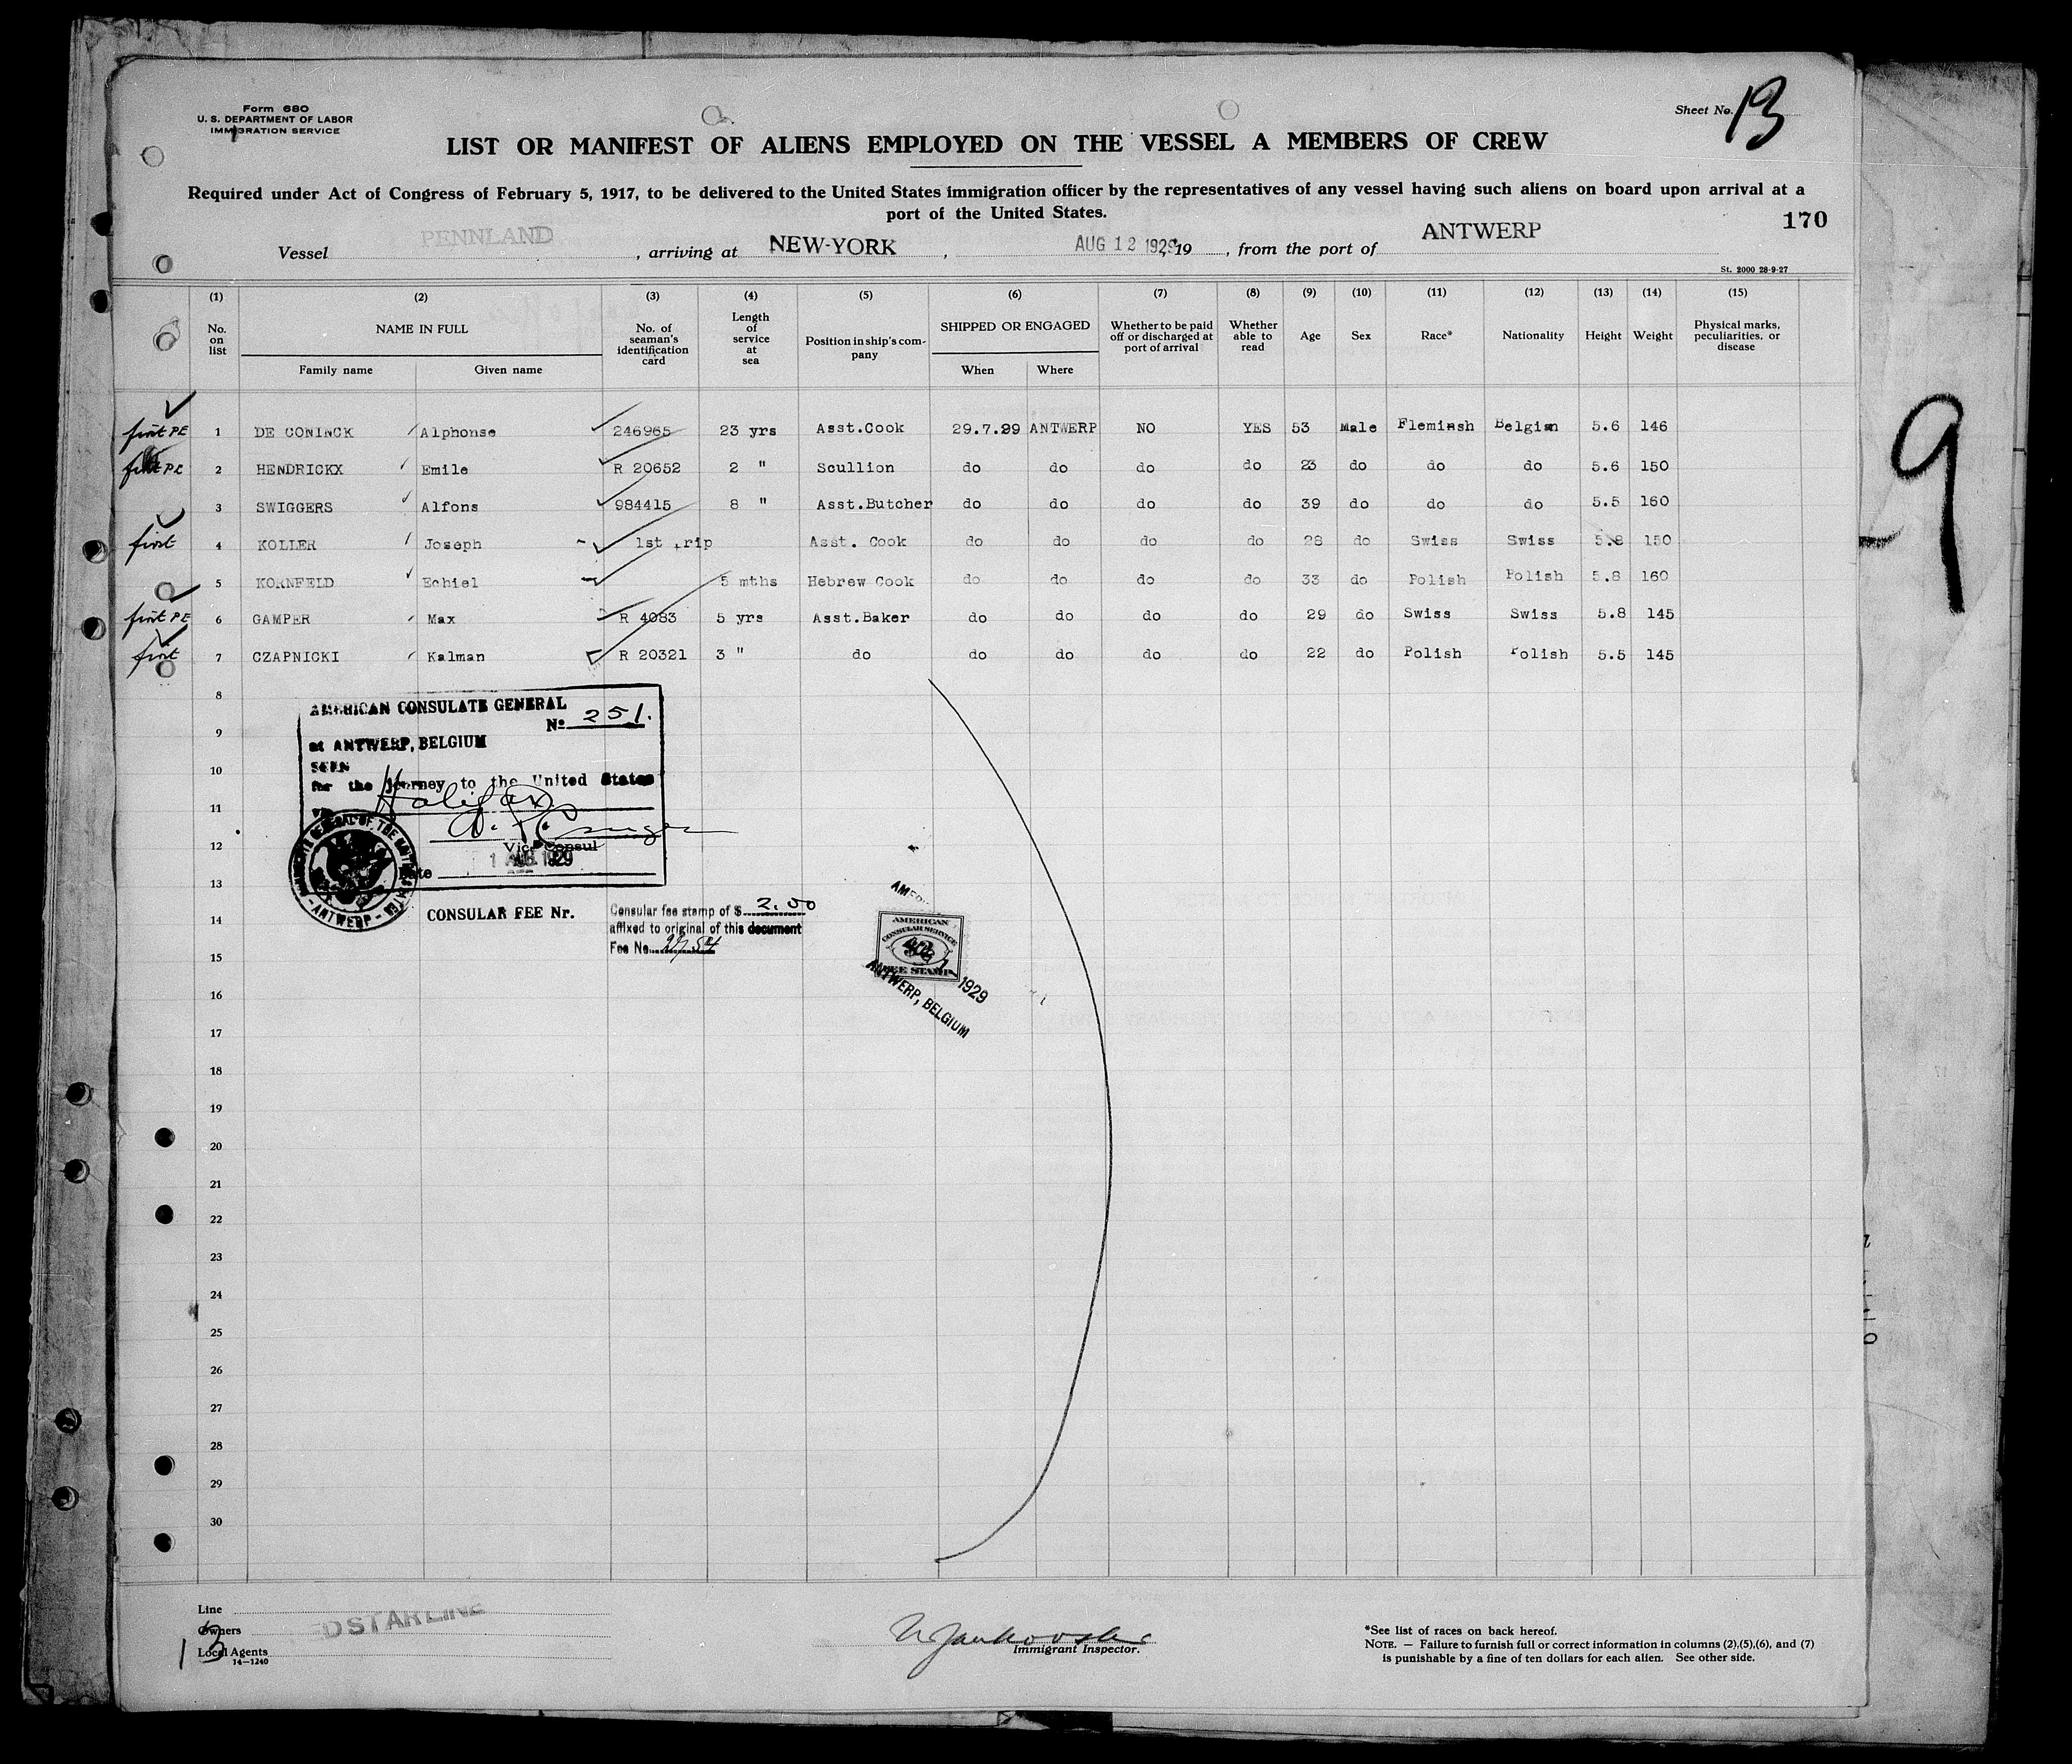 Form 680
U. S. DEPARTMENT OF LABOR
IMMIGRATION SERVICE
Sheet No. 13
LIST OR MANIFEST OF ALIENS EMPLOYED ON THE VESSEL A MEMBERS OF CREW
Required under Act of Congress of February 5, 1917, to be delivered to the United States immigration officer by the representatives of any vessel having such aliens on board upon arrival at a
port of the United States.
170
Vessel PENNLAND , arriving at NEW-YORK , AUG 12 1929 19 , from the port of ANTWERP
St. 2000 28-9-27
(1) (2) (3) (4) (5) (6) (7) (8) (9) (10) (11) (12) (13) (14) (15)
No. on list NAME IN FULL Family name Given name No. of seaman's identification card Length of service at sea Position in ship's com-pany SHIPPED OR ENGAGED When Where Whether to be paid off or discharged at port of arrival Whether able to read Age Sex Race* Nationality Height Weight Physical marks, peculiarities, or disease
first PE 1 DE CONINCK Alphonse 246965 23 yrs Asst.Cook 29.7.29 ANTWERP NO YES 53 Male Flemish Belgian 5.6 146
first PE 2 HENDRICKX Emile R 20652 2 " Scullion do do do do 23 do do do 5.6 150
3 SWIGGERS Alfons 984415 8 " Asst.Butcher do do do do 39 do do do 5.5 160
first 4 KOLLER Joseph 1st trip Asst. Cook do do do do 28 do Swiss Swiss 5.8 150
5 KORNFELD Echiel 5 mths Hebrew Cook do do do do 33 do Polish Polish 5.8 160
first PE 6 GAMPER Max R 4083 5 yrs Asst.Baker do do do do 29 do Swiss Swiss 5.8 145
first 7 CZAPNICKI Kalman R 20321 3 " do do do do do 22 do Polish Polish 5.5 145
8
AMERICAN CONSULATE GENERAL
No 251.
9
at ANTWERP, BELGIUM
SEEN
10
for the journey to the United States
11
Halifax
12
Vice Consul
Date 1 AUG. 1929
13
ANTWERP
CONSULAR FEE Nr.
Consular fee stamp of $ 2.00
affixed to original of this document
Fee No.
14
AMERICAN
CONSULAR SERVICE
FEE STAMP
1929
ANTWERP, BELGIUM
15
16
17
18
19
20
21
22
23
24
25
26
27
28
29
30
Line
Owners
Local Agents
14—1240
DSTARLINE
13
Immigrant Inspector.
*See list of races on back hereof.
NOTE. — Failure to furnish full or correct information in columns (2),(5),(6), and (7)
is punishable by a fine of ten dollars for each alien. See other side.
9